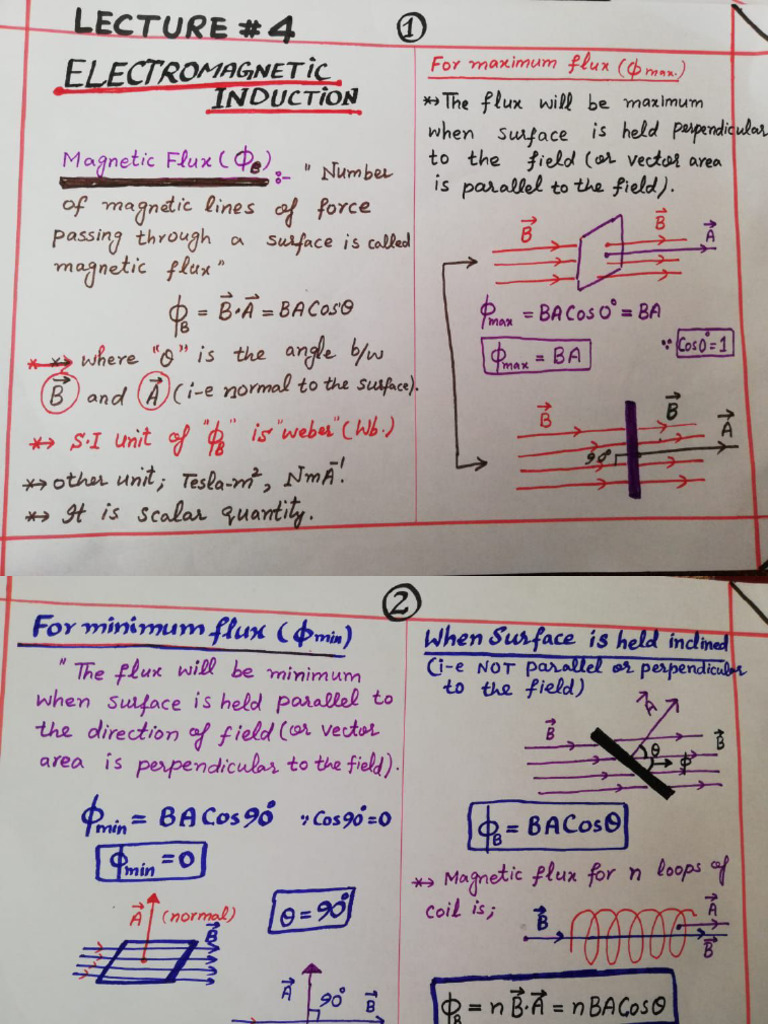 LECTURE # 4
①
ELECTROMAGNETIC
INDUCTION
Magnetic Flux (ϕB) :- " Number
of magnetic lines of force
passing through a surface is called
magnetic flux"
ϕB = B⃗·A⃗ = BACosθ
*→ where "θ" is the angle b/w
B⃗ and A⃗ (i-e normal to the surface).
*→ S.I unit of "ϕB" is "weber" (Wb.)
*→ other unit; Tesla-m², NmA⁻¹.
*→ It is scalar quantity.
For maximum flux (ϕmax.)
*→ The flux will be maximum
when surface is held perpendicular
to the field (or vector area
is parallel to the field).
B⃗ B⃗ A⃗
ϕmax = BACos0° = BA
ϕmax = BA ∵ Cos0°=1
B⃗ B⃗ A⃗
90°
②
For minimum flux (ϕmin)
" The flux will be minimum
when surface is held parallel to
the direction of field (or vector
area is perpendicular to the field).
ϕmin = BACos90° ∵ Cos90°=0
ϕmin = 0
θ = 90°
A⃗ (normal)
B⃗
A⃗ 90° B⃗
When Surface is held inclined
(i-e NOT parallel or perpendicular
to the field)
A⃗
B⃗ θ B⃗
ϕ
ϕB = BACosθ
*→ Magnetic flux for n loops of
coil is;
B⃗ A⃗
B⃗
ϕB = n B⃗·A⃗ = nBACosθ